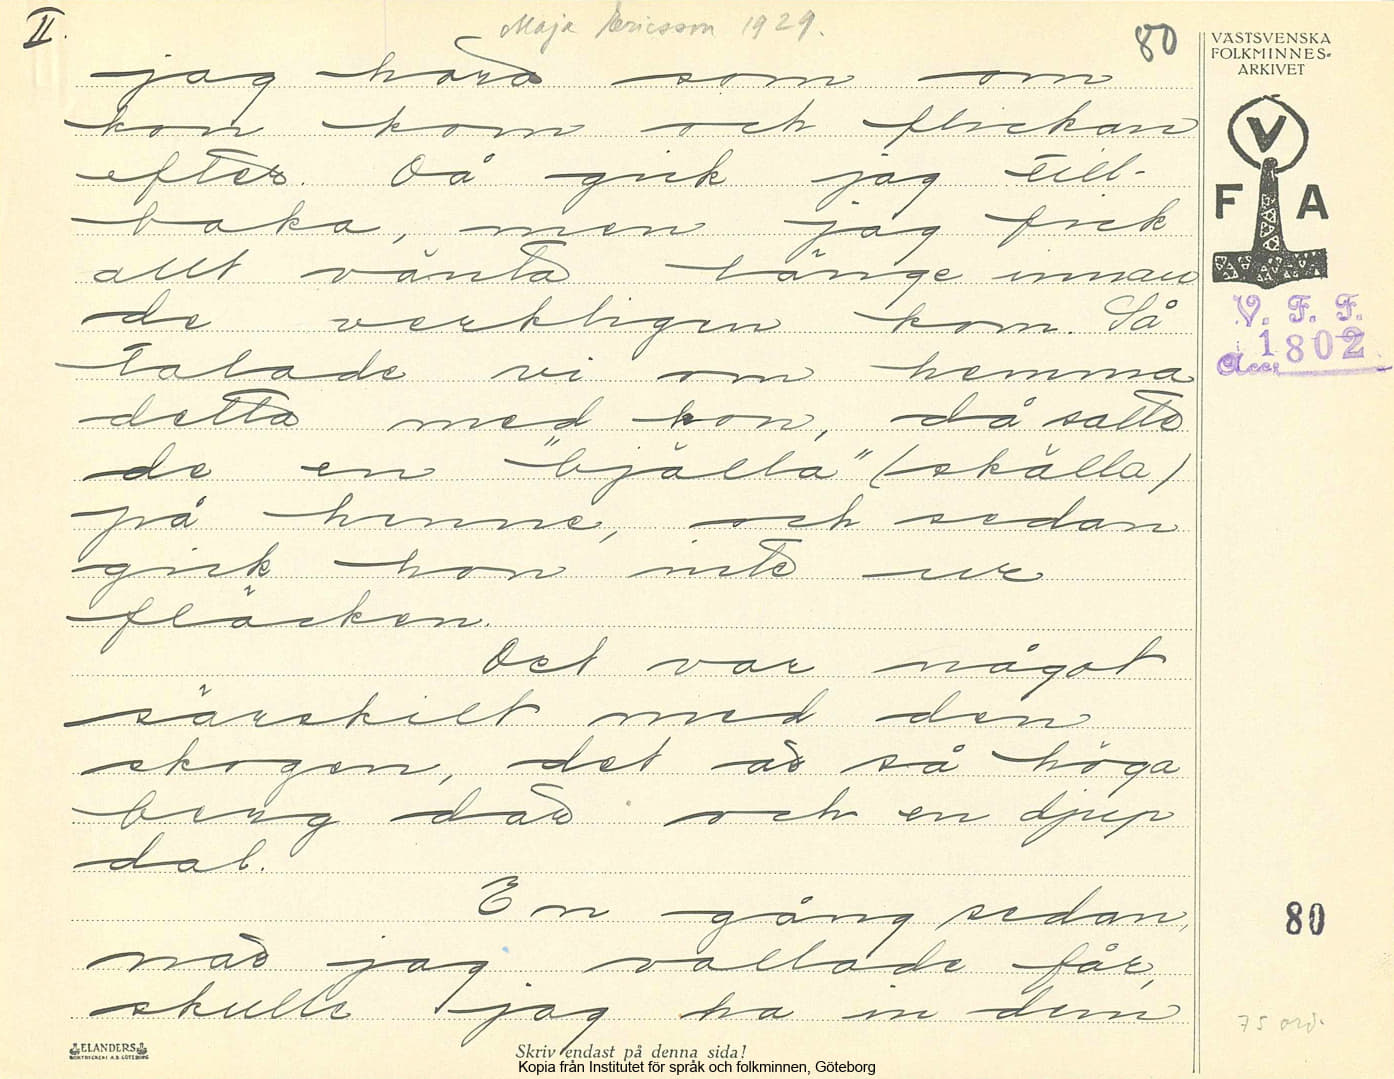 II.
Maja Ericsson 1929.
80
VÄSTSVENSKA
FOLKMINNES-
ARKIVET
V
F A
V. F. F.
Acc. 1802
jag hörd som om
kon kom och flickan
efter. Då gick jag till-
baka, men jag fick
allt vänta länge innan
de verkligen kom. Så
talade vi om hemma
detta med kon, då satte
de en "bjälla" (skälla)
på henne, och sedan
gick hon inte ur
fläcken.
Det var något
särskilt med den
skogen, det är så höga
berg där och en djup
dal.
En gång sedan,
när jag vallade får,
skulle jag ha in dem
80
75 ord.
ELANDERS
BOKTRYCKERI A.B. GÖTEBORG
Skriv endast på denna sida!
Kopia från Institutet för språk och folkminnen, Göteborg